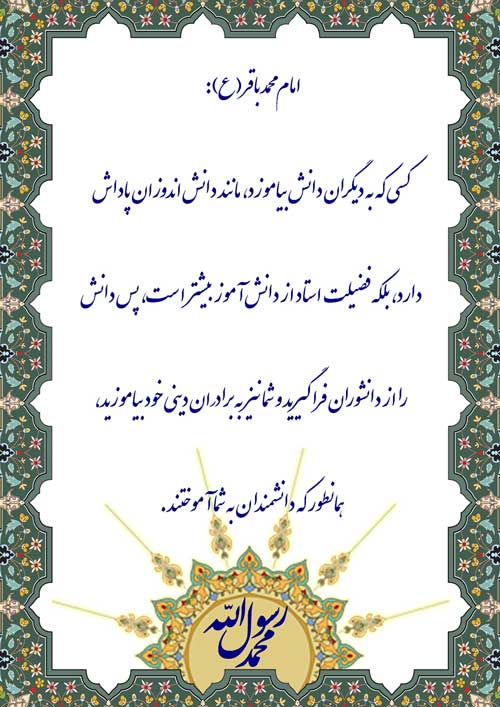 امام محمد باقر(ع):
کسی که به دیگران دانش بیاموزد، مانند دانش اندوزان پاداش
دارد، بلکه فضیلت استاد از دانش آموز بیشتر است، پس دانش
را از دانشوران فراگیرید و شما نیز به برادران دینی خود بیاموزید،
همانطور که دانشمندان به شما آموختند.
محمد رسول الله